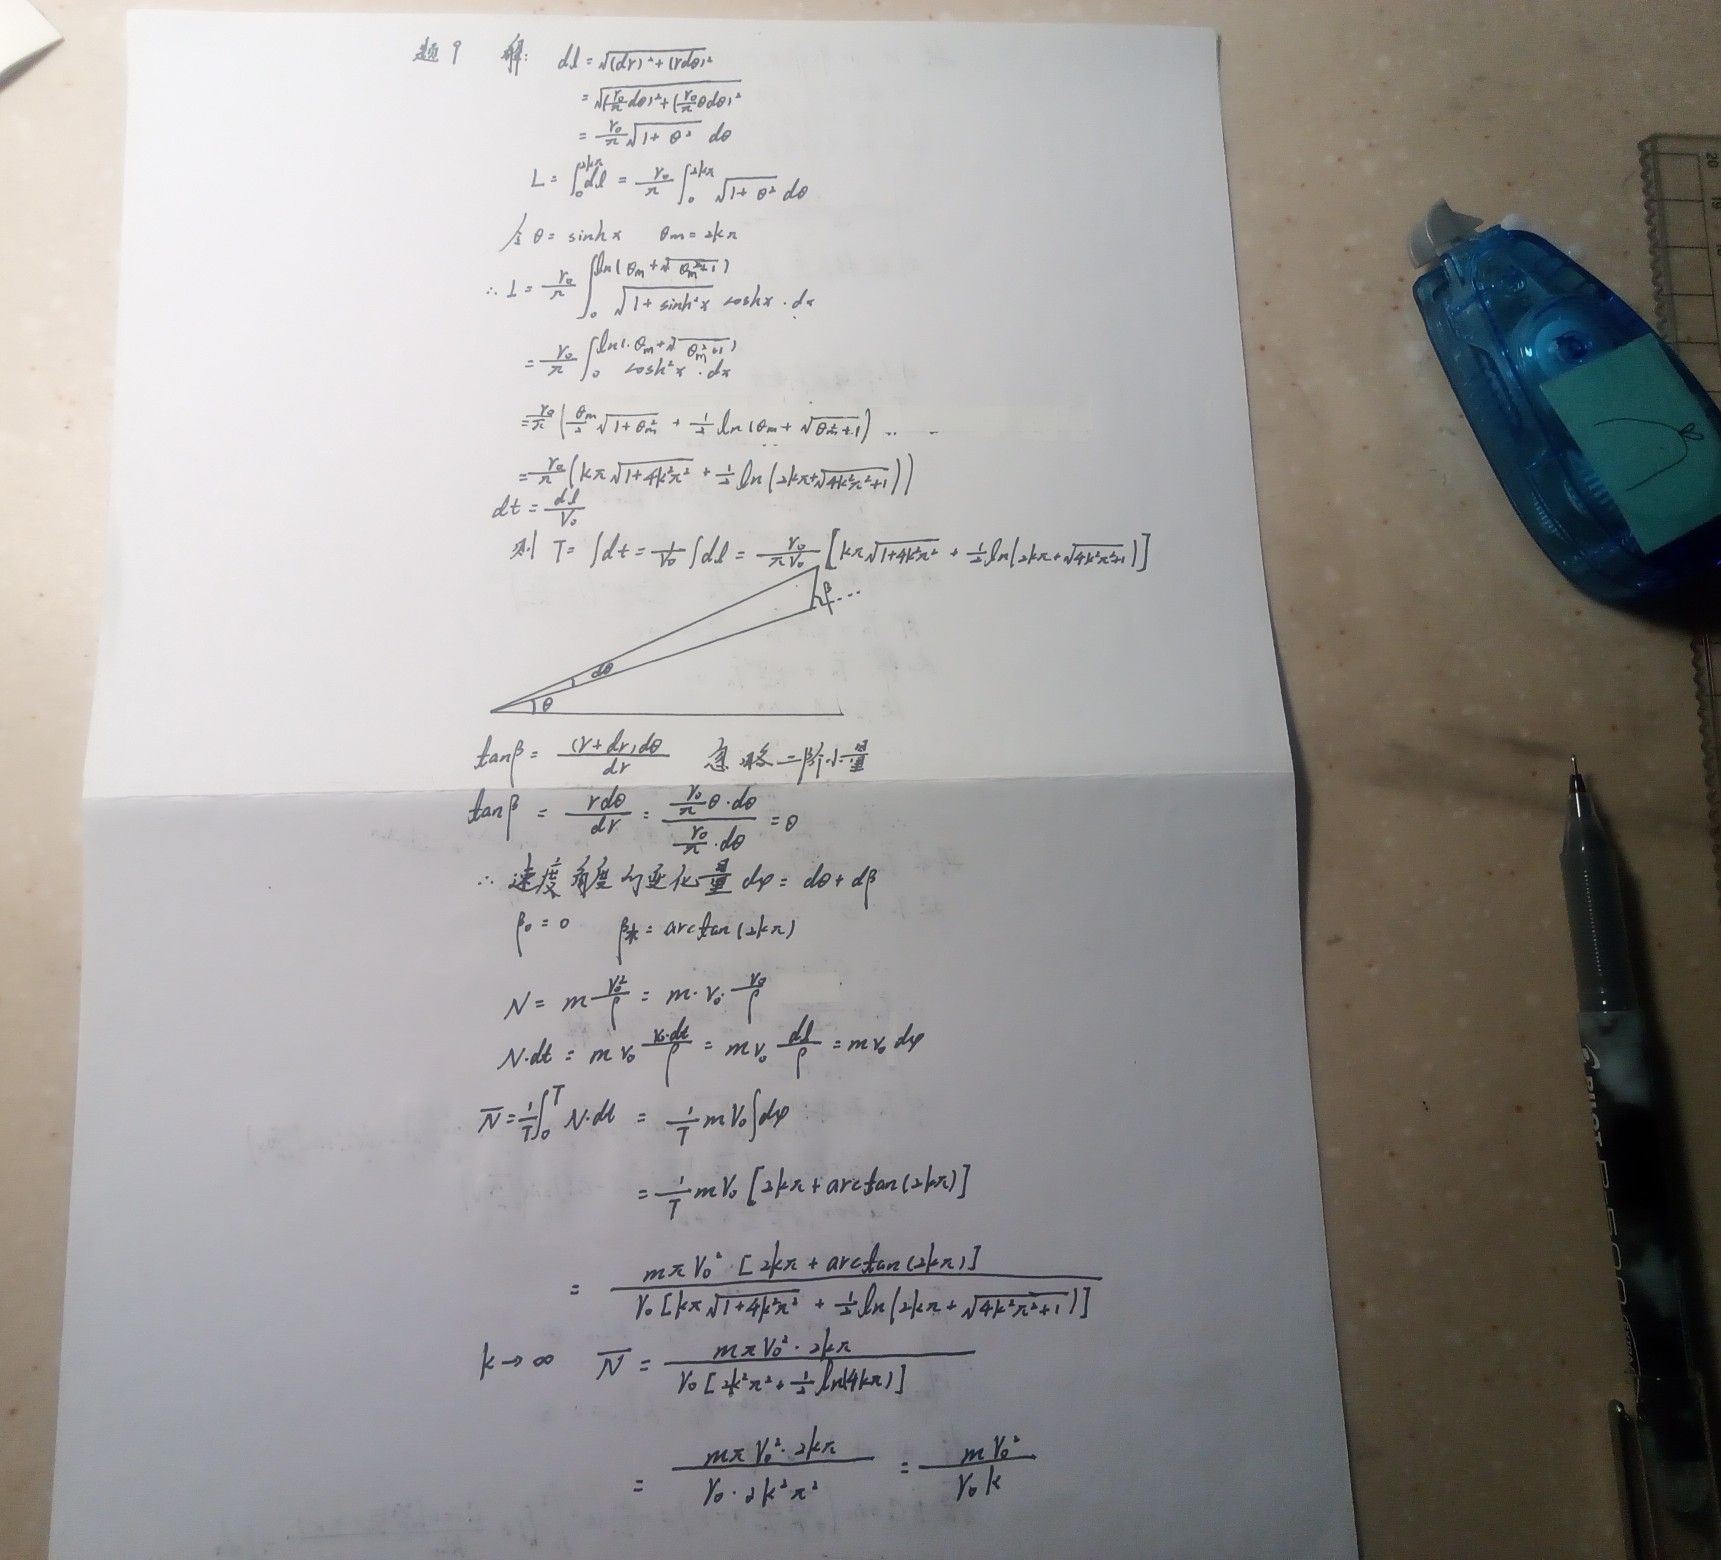 题9 解: dl = √((dr)²+(rdθ)²)
= √((r₀/π dθ)²+(r₀/π θdθ)²)
= r₀/π √(1+θ²) dθ
L = ∫₀^{2kπ} dl = r₀/π ∫₀^{2kπ} √(1+θ²) dθ
令 θ = sinhx θm = 2kπ
∴ L = r₀/π ∫₀^{ln(θm+√(θm²+1))} √(1+sinh²x) coshx · dx
= r₀/π ∫₀^{ln(θm+√(θm²+1))} cosh²x · dx
= r₀/π (θm/2 √(1+θm²) + 1/2 ln(θm+√(θm²+1))
= r₀/π (kπ√(1+4k²π²) + 1/2 ln(2kπ+√(4k²π²+1)))
dt = dl/V₀
则 T = ∫dt = 1/V₀ ∫dl = r₀/(πV₀) [kπ√(1+4k²π²) + 1/2 ln(2kπ+√(4k²π²+1))]
β
dθ
θ
tanβ = (r+dr)dθ/dr 忽略二阶小量
tanβ = rdθ/dr = (r₀/π θ·dθ)/(r₀/π ·dθ) = θ
∴ 速度角度的变化量 dφ = dθ + dβ
β₀ = 0 β末 = arctan(2kπ)
N = m V₀²/ρ = m·V₀· V₀/ρ
N·dt = m V₀ V₀·dt/ρ = m V₀ dl/ρ = m V₀ dφ
N̅ = 1/T ∫₀^T N·dt = 1/T m V₀ ∫dφ
= 1/T m V₀ [2kπ + arctan(2kπ)]
= mπV₀² · [2kπ + arctan(2kπ)] / r₀[kπ√(1+4k²π²) + 1/2 ln(2kπ+√(4k²π²+1))]
k→∞ N̅ = mπV₀² · 2kπ / r₀[2k²π² + 1/2 ln(4kπ)]
= mπV₀² · 2kπ / r₀ · 2k²π² = mV₀² / r₀k
PILOT
20
19